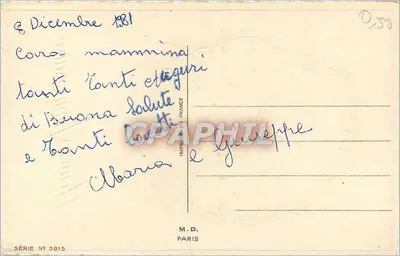 8 Dicembre 1981
0,50
Cara mammina
tanti Tanti Auguri
di Buona Salute
e Tanti
Maria e Giuseppe
IMPRIMÉ EN FRANCE
CPAPHIL.com
M.D.
PARIS
SÉRIE Nº 3815